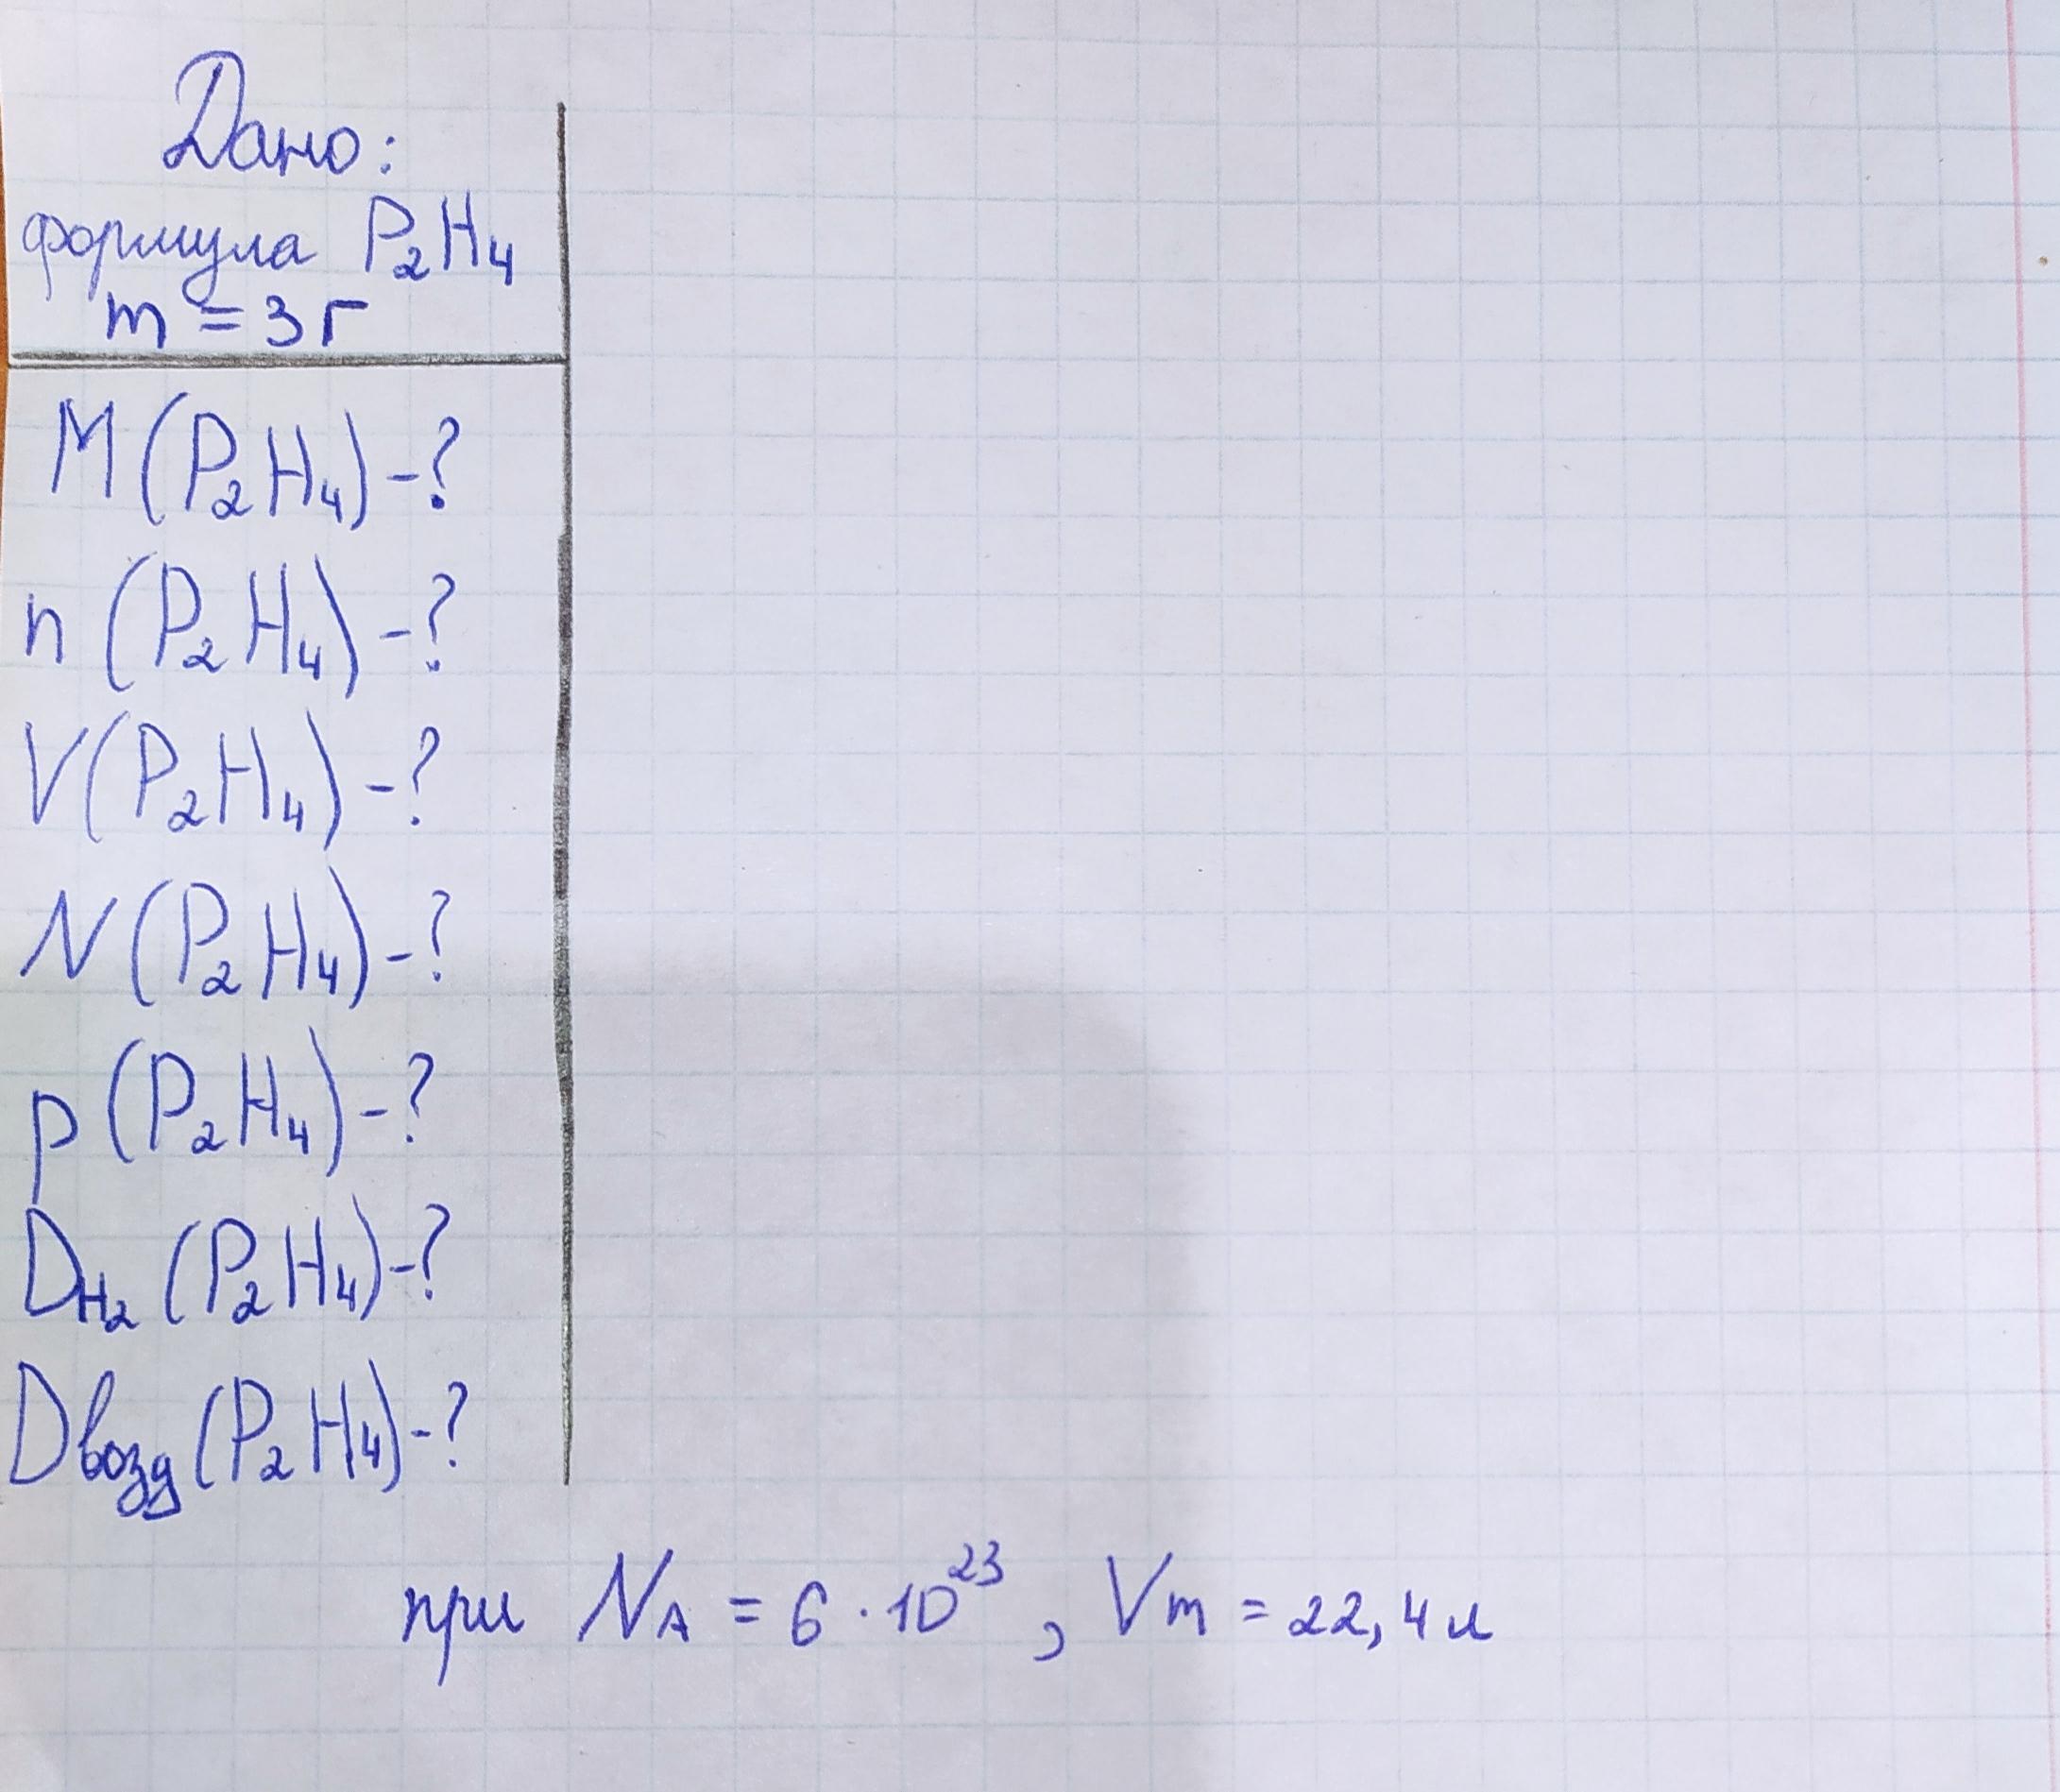 Дано:
формула P₂H₄
m = 3 г
M(P₂H₄) - ?
n(P₂H₄) - ?
V(P₂H₄) - ?
N(P₂H₄) - ?
p(P₂H₄) - ?
D_H₂(P₂H₄) - ?
Dвозд(P₂H₄) - ?
при N_A = 6 · 10²³, Vm = 22,4 л